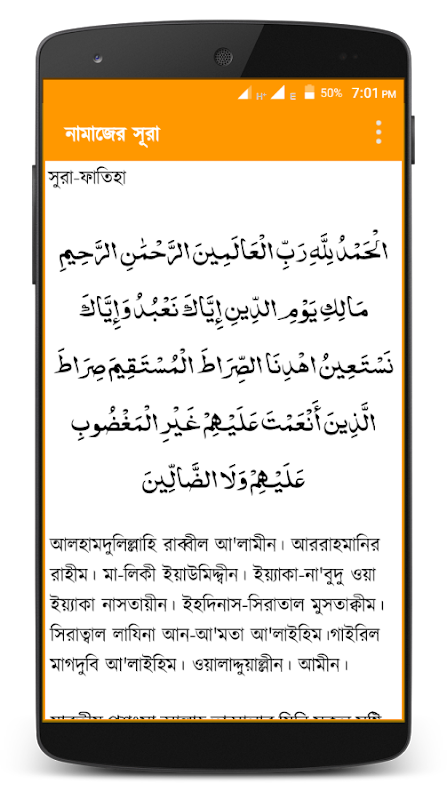 H+ E 50% 7:01 PM
নামাজের সূরা
সুরা-ফাতিহা
الْحَمْدُ لِلَّهِ رَبِّ الْعَالَمِينَ الرَّحْمَٰنِ الرَّحِيمِ
مَالِكِ يَوْمِ الدِّينِ إِيَّاكَ نَعْبُدُ وَإِيَّاكَ
نَسْتَعِينُ اهْدِنَا الصِّرَاطَ الْمُسْتَقِيمَ صِرَاطَ
الَّذِينَ أَنْعَمْتَ عَلَيْهِمْ غَيْرِ الْمَغْضُوبِ
عَلَيْهِمْ وَلَا الضَّالِّينَ
আলহামদুলিল্লাহি রাব্বীল আ'লামীন। আররাহমানির
রাহীম। মা-লিকী ইয়াউমিদ্দ্বীন। ইয়্যাকা-না'বুদু ওয়া
ইয়্যাকা নাসতায়ীন। ইহদিনাস-সিরাতাল মুসতাক্বীম।
সিরাত্বাল লাযিনা আন-আ'মতা আ'লাইহিম।গাইরিল
মাগদুবি আ'লাইহিম। ওয়ালাদ্দুয়াল্লীন। আমীন।